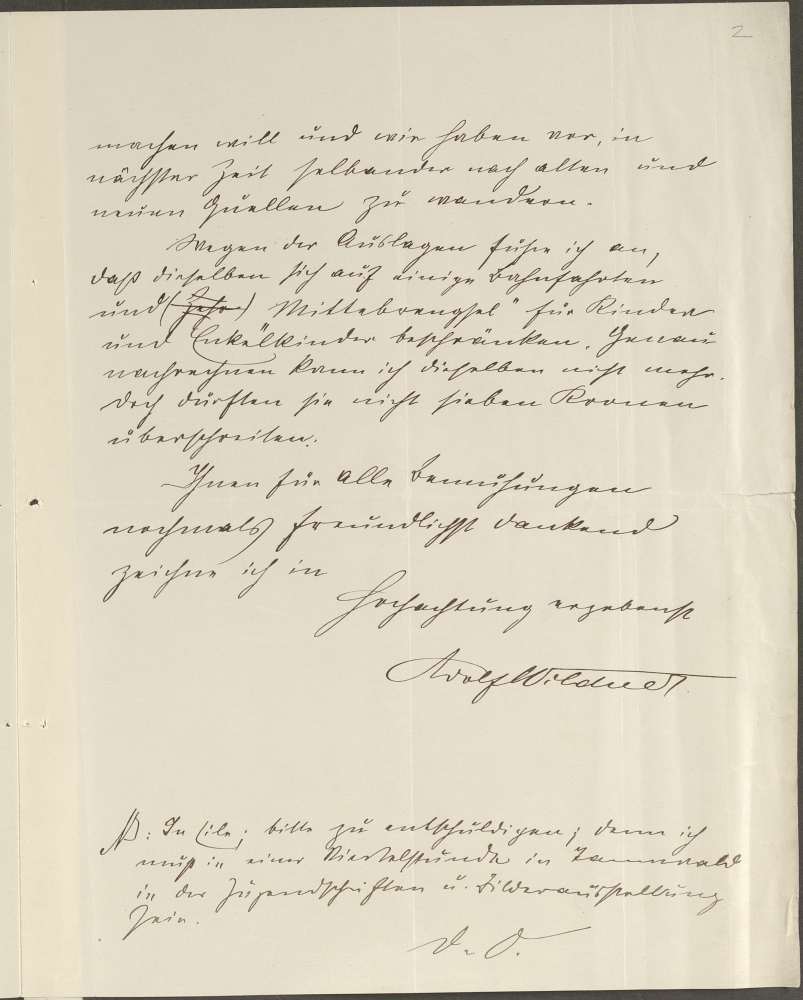 2
machen will und wir haben vor, in
nächster Zeit selbander nach alten und
neuen Quellen zu wandern.
Wegen der Auslagen führe ich an,
daß dieselben sich auf einige Bahnfahrten
und ( Mittebrengsel" für Kinder
und Enkelkinder beschränken. Genau
nachrechnen kann ich dieselben nicht mehr.
doch dürften sie nicht sieben Kronen
überschreiten.
Ihnen für alle Bemühungen
nochmals freundlichst dankend
zeichne ich in
Hochachtung ergebenst
Adolf Wildner.
NB: In Eile; bitte zu entschuldigen; denn ich
muß in einer Viertelstunde in Tannwald
in der Jugendschriften u. Bilderausstellung
sein.
D. O.